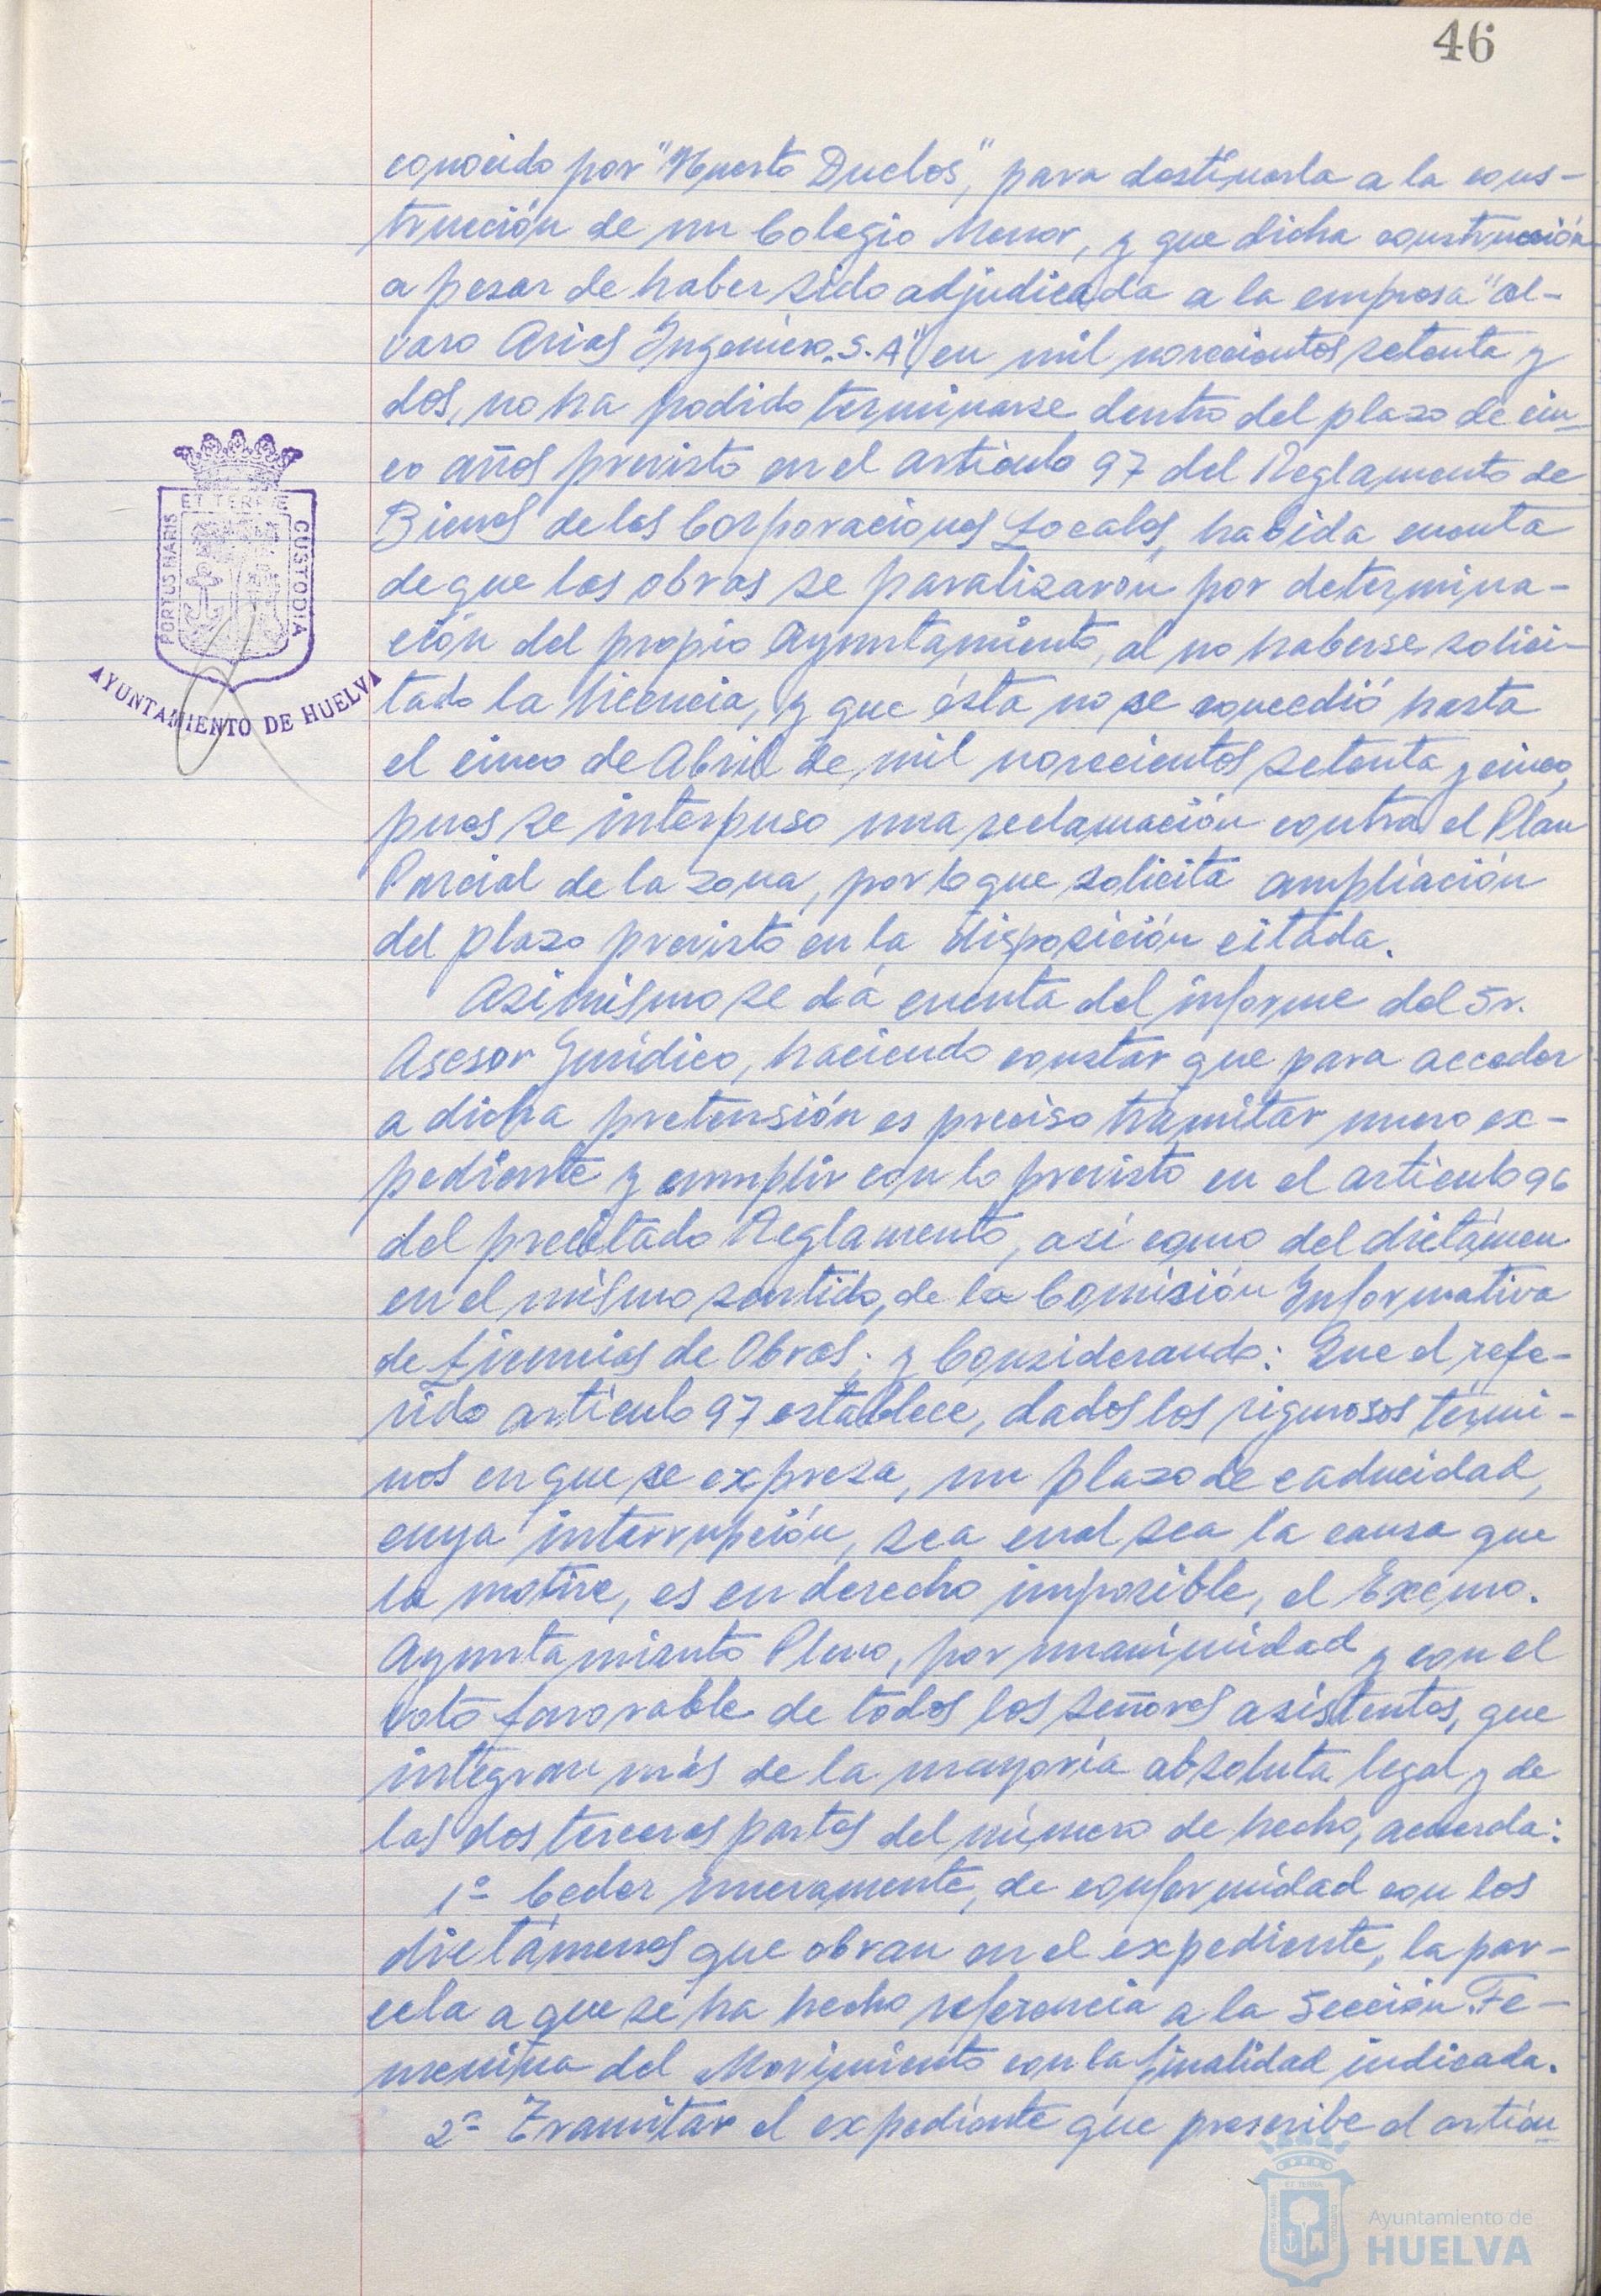 46
conocido por "Huerto Duclos", para destinarla a la cons-
trucción de un Colegio Menor, y que dicha construcción
a pesar de haber sido adjudicada a la empresa "Al-
varo Arias Ingeniero, S.A." en mil novecientos setenta y
dos, no ha podido terminarse dentro del plazo de cin-
co años previsto en el artículo 97 del Reglamento de
Bienes de las Corporaciones Locales, habida cuenta
de que las obras se paralizarón por determina-
ción del propio Ayuntamiento, al no haberse solici-
tado la licencia, y que ésta no se concedió hasta
el cinco de Abril de mil novecientos setenta y cinco,
pues se interpuso una reclamación contra el Plan
Parcial de la zona, por lo que solicita ampliación
del plazo previsto en la disposición citada.
Asimismo se dá cuenta del informe del Sr.
Asesor Jurídico, haciendo constar que para acceder
a dicha pretensión es preciso tramitar nuevo ex-
pediente y cumplir con lo previsto en el artículo 96
del precitado Reglamento, así como del dictámen
en el mismo sentido, de la Comisión Informativa
de Licencias de Obras; y Considerando: Que el refe-
rido artículo 97 establece, dados los rigurosos térmi-
nos en que se expresa, un plazo de caducidad,
cuya interrupción, sea cual sea la causa que
la motive, es en derecho imposible, el Excmo.
Ayuntamiento Pleno, por unanimidad y con el
voto favorable de todos los señores asistentes, que
integran más de la mayoría absoluta legal y de
las dos terceras partes del número de hecho, acuerda:
1º- Ceder nuevamente, de conformidad con los
dictámenes que obran en el expediente, la par-
cela a que se ha hecho referencia a la Sección Fe-
menina del Movimiento con la finalidad indicada.
2º- Tramitar el expediente que prescribe el artícu-
PORTUS MARIS
ET TERRÆ
CUSTODIA
AYUNTAMIENTO DE HUELVA
Ayuntamiento de
HUELVA